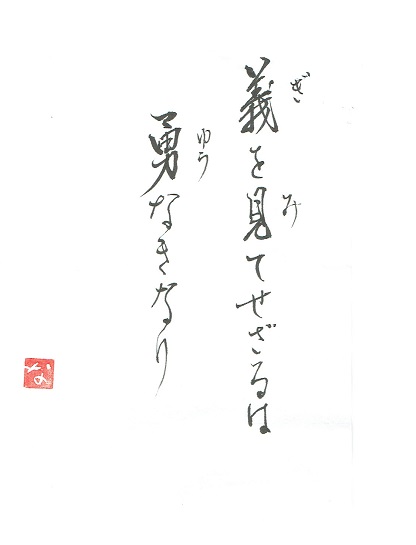 義を見てせざるは
ぎ
み
勇なきなり
ゆう
な